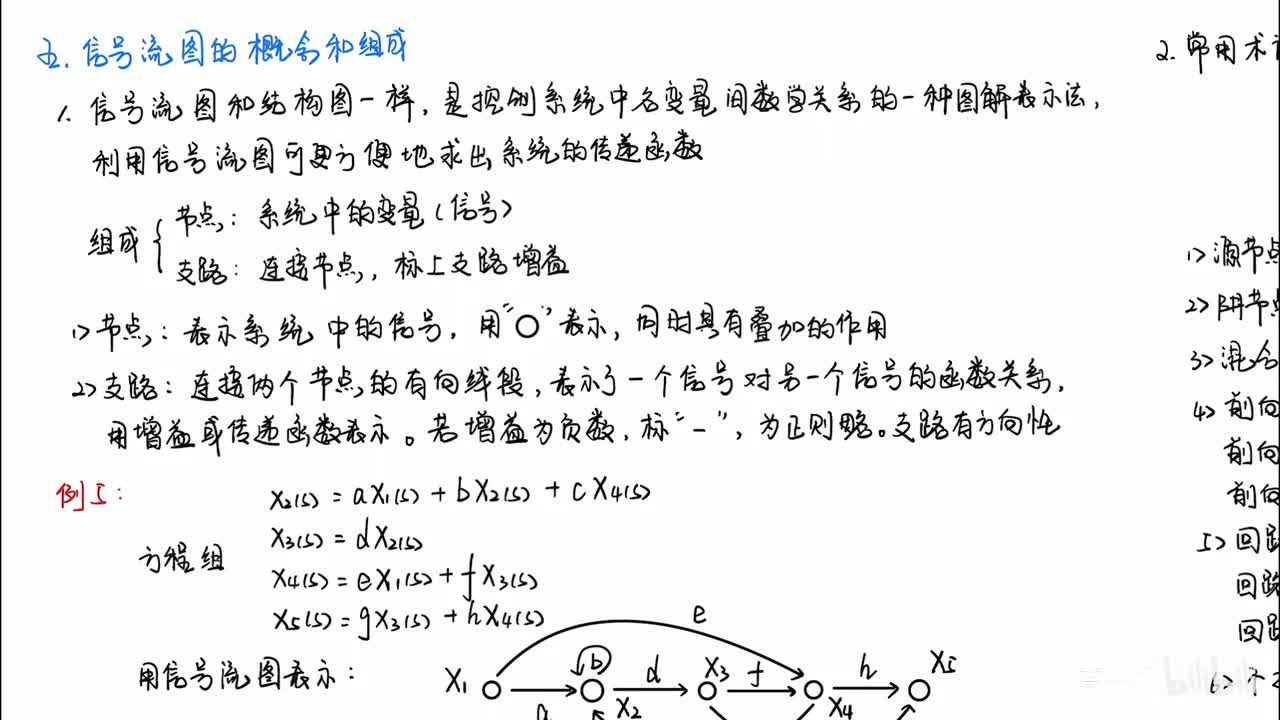 五.信号流图的概念和组成
1. 信号流图和结构图一样,是控制系统中各变量间数学关系的一种图解表示法,
利用信号流图可更方便地求出系统的传递函数
组成 { 节点: 系统中的变量(信号)
支路: 连接节点, 标上支路增益
1> 节点: 表示系统中的信号, 用"○"表示, 同时具有叠加的作用
2> 支路: 连接两个节点的有向线段, 表示了一个信号对另一个信号的函数关系,
用增益或传递函数表示。若增益为负数, 标"-", 为正则略。支路有方向性
例5:
X2(s) = aX1(s) + bX2(s) + cX4(s)
方程组
X3(s) = dX2(s)
X4(s) = eX1(s) + fX3(s)
X5(s) = gX3(s) + hX4(s)
用信号流图表示:
e
X1 a b X2 d X3 f X4 h X5
2. 常用术
1> 源节点
2> 阱节点
3> 混合
4> 前向
前向
前向
5> 回路
回路
回路
6> 不
bilibili